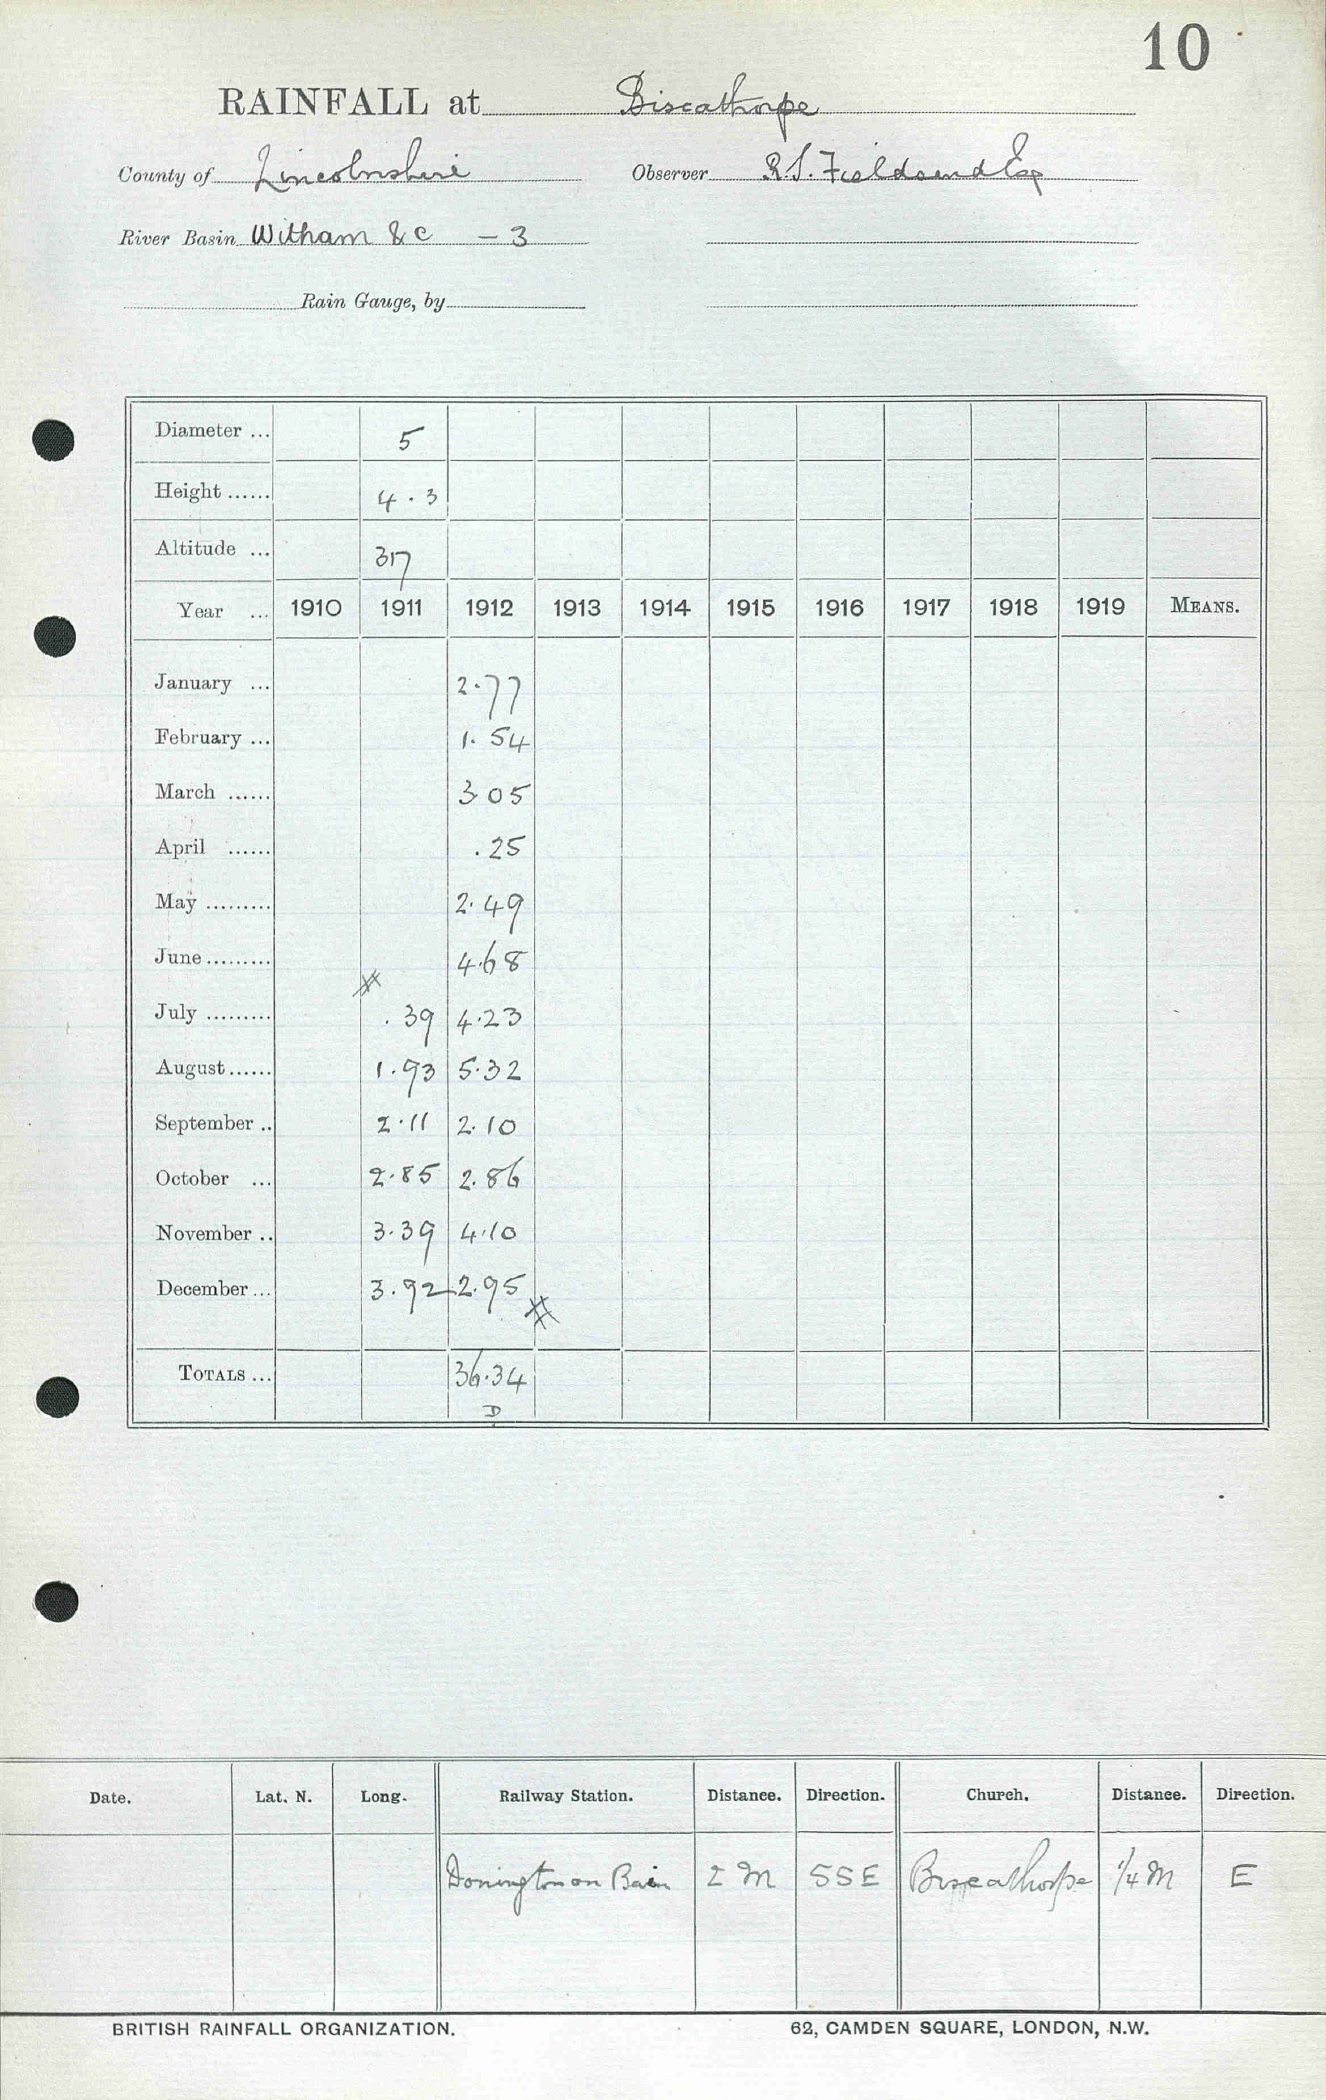 10
RAINFALL at Biscathorpe
County of Lincolnshire Observer R.S. Fieldsend Esq
River Basin Witham & c - 3
Rain Gauge, by
Diameter ... 5
Height ...... 4.3
Altitude ... 317
Year ... 1910 1911 1912 1913 1914 1915 1916 1917 1918 1919 MEANS.
January ... 2.77
February ... 1.54
March ...... 3 05
April ...... .25
May ......... 2.49
June ......... 4.68
July ......... .39 4.23
August ...... 1.93 5.32
September .. 2.11 2.10
October ... 2.85 2.86
November .. 3.39 4.10
December ... 3.92 2.95
TOTALS ... 36.34
D
Date. Lat. N. Long. Railway Station. Distance. Direction. Church. Distance. Direction.
Donington on Bain 2 M SSE Biscathorpe 1/4 M E
BRITISH RAINFALL ORGANIZATION. 62, CAMDEN SQUARE, LONDON, N.W.